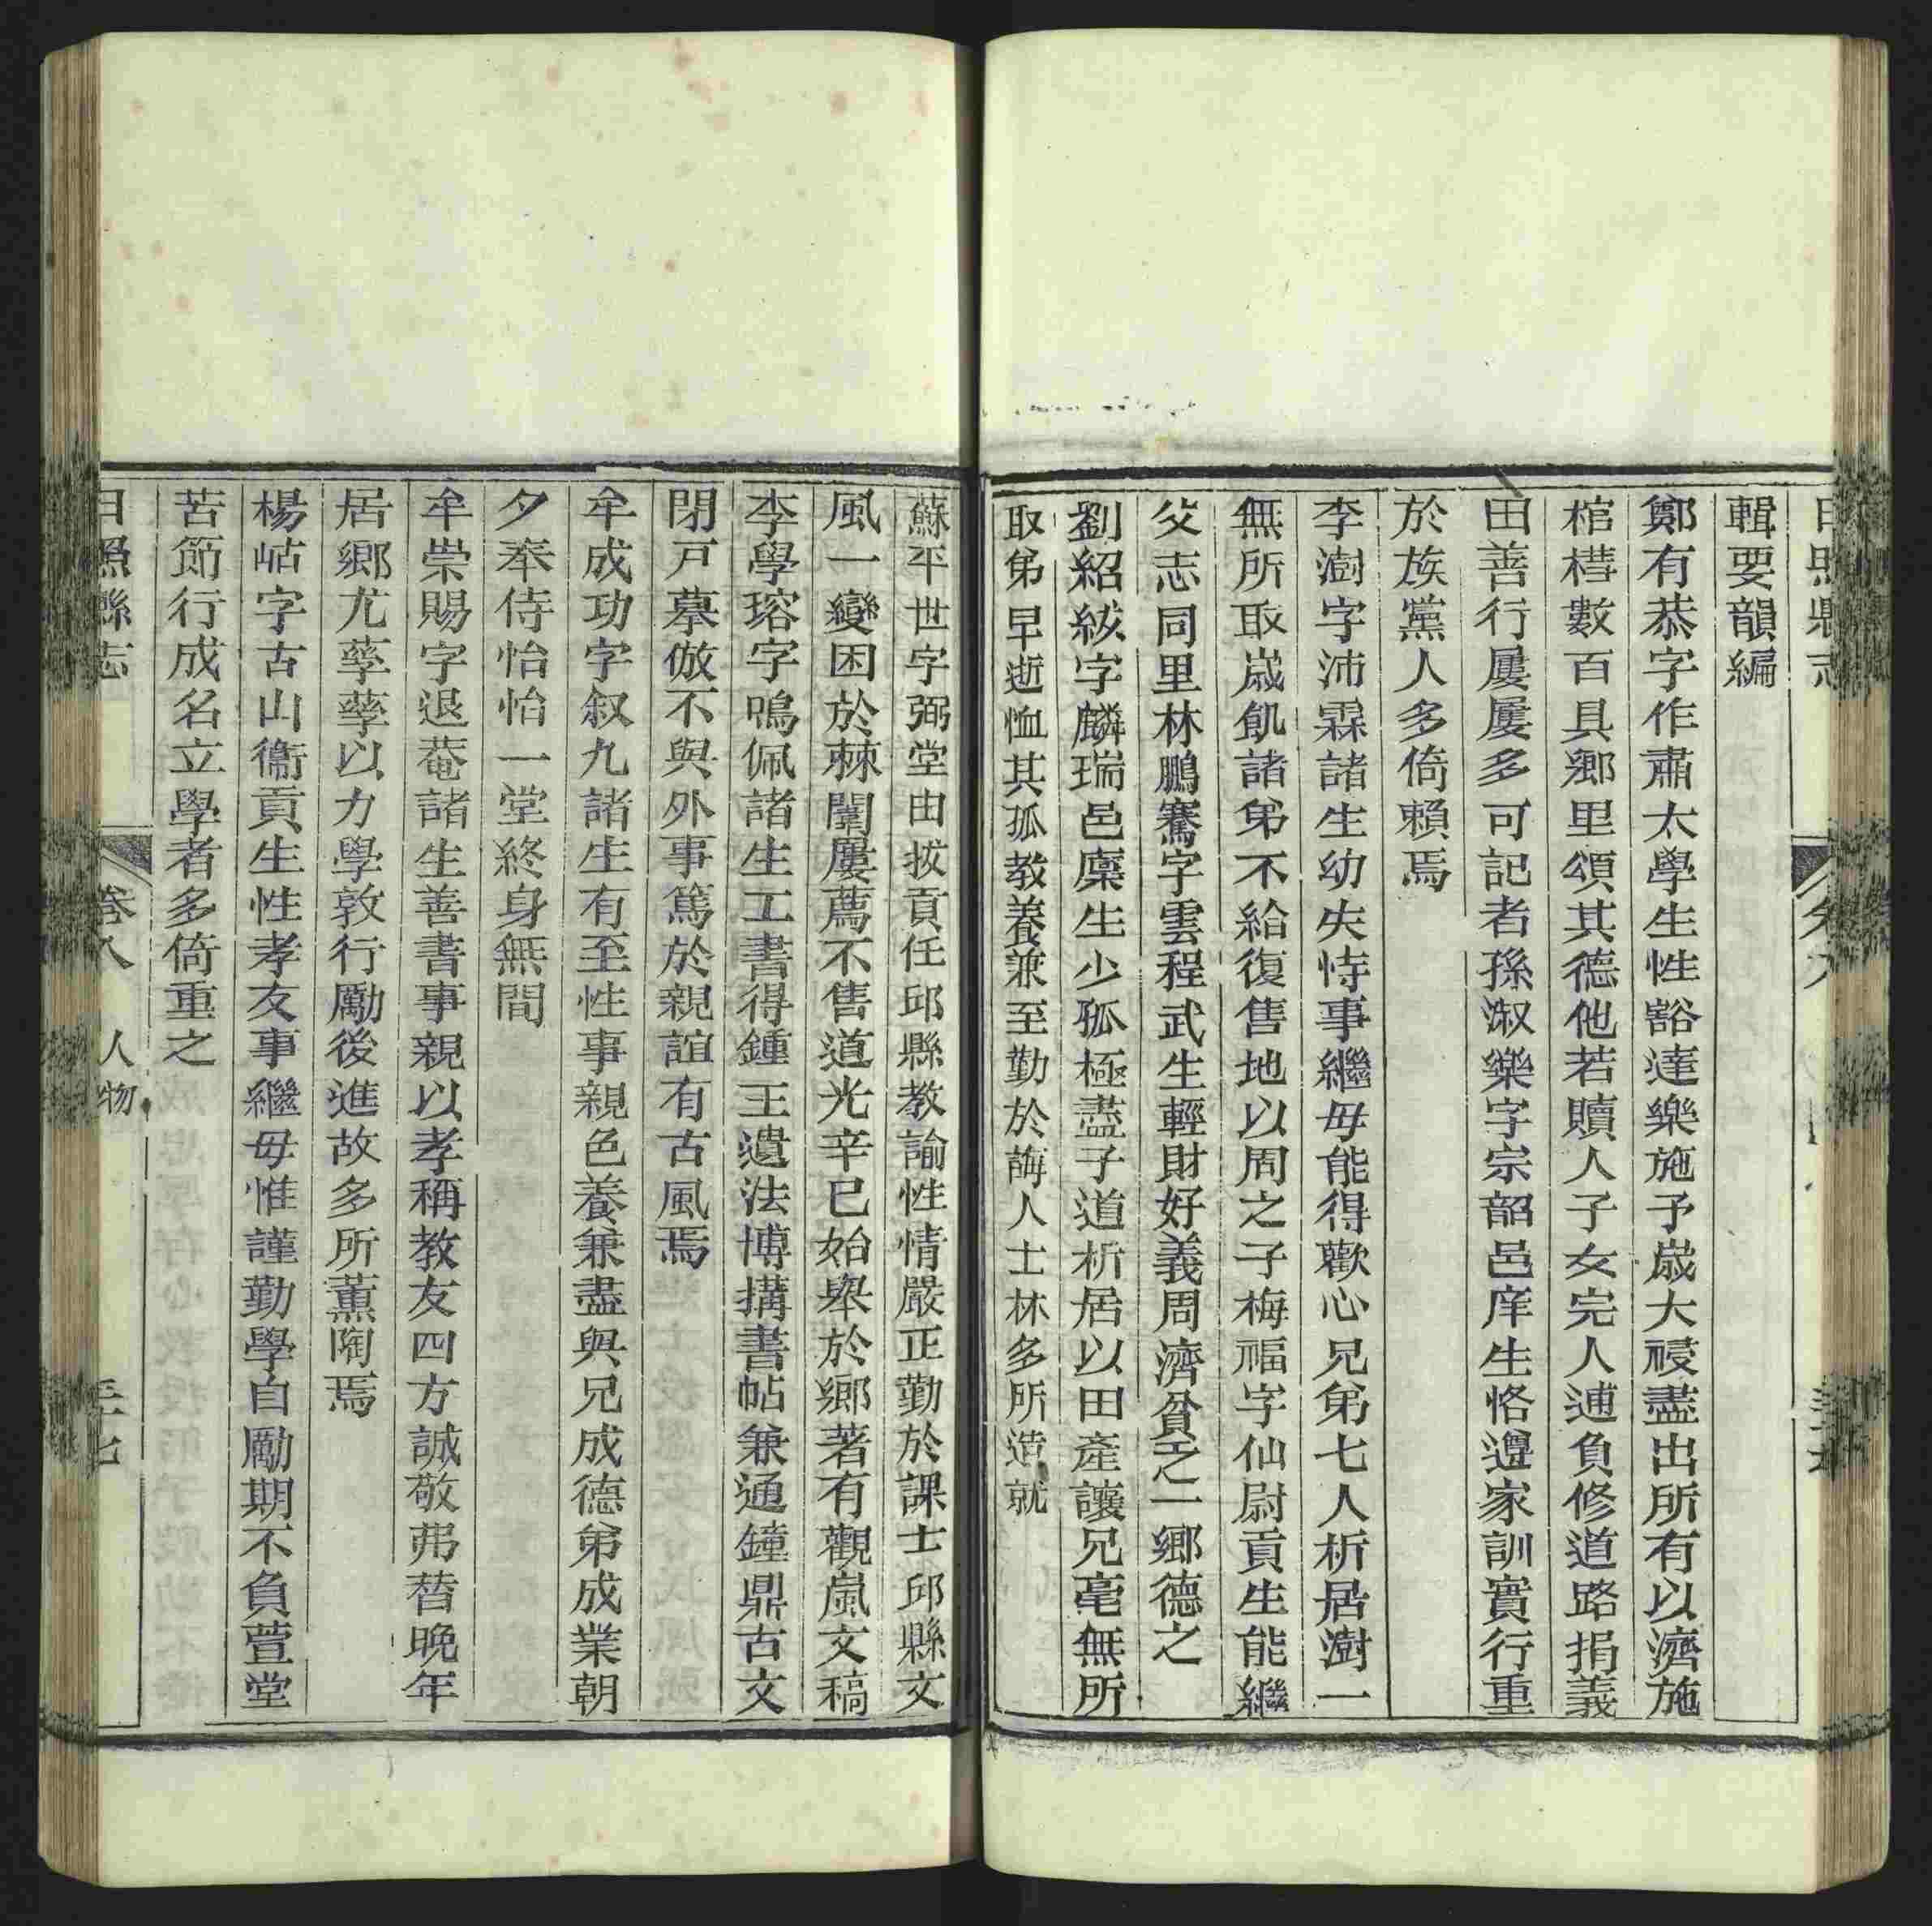 輯要韻編
鄭有恭字作肅太學生性豁達樂施予歲大祲盡出所有以濟施
棺槥數百具鄉里頌其德他若贖人子女完人逋負修道路捐義
田善行屢屢多可記者孫淑樂字宗韶邑庠生恪遵家訓實行重
於族黨人多倚賴焉
李澍字沛霖諸生幼失恃事繼母能得歡心兄弟七人析居澍一
無所取歲飢諸弟不給復售地以周之子梅福字仙尉貢生能繼
父志同里林鵬騫字雲程武生輕財好義周濟貧乏一鄉德之
劉紹紱字麟瑞邑廩生少孤極盡子道析居以田產讓兄毫無所
取弟早逝恤其孤教養兼至勤於誨人士林多所造就
蘇平世字弼堂由拔貢任邱縣教諭性情嚴正勤於課士邱縣文
風一變困於棘闈屢薦不售道光辛巳始舉於鄉著有觀嵐文稿
李學瑢字鳴佩諸生工書得鍾王遺法博搆書帖兼通鐘鼎古文
閉戸摹倣不與外事篤於親誼有古風焉
牟成功字叙九諸生有至性事親色養兼盡與兄成德弟成業朝
夕奉侍怡怡一堂終身無間
牟崇賜字退菴諸生善書事親以孝稱教友四方誠敬弗替晚年
居鄉尤孳孳以力學敦行勵後進故多所薰陶焉
楊岵字古山衞貢生性孝友事繼母惟謹勤學自勵期不負萱堂
苦節行成名立學者多倚重之
日照縣志 卷八 人物